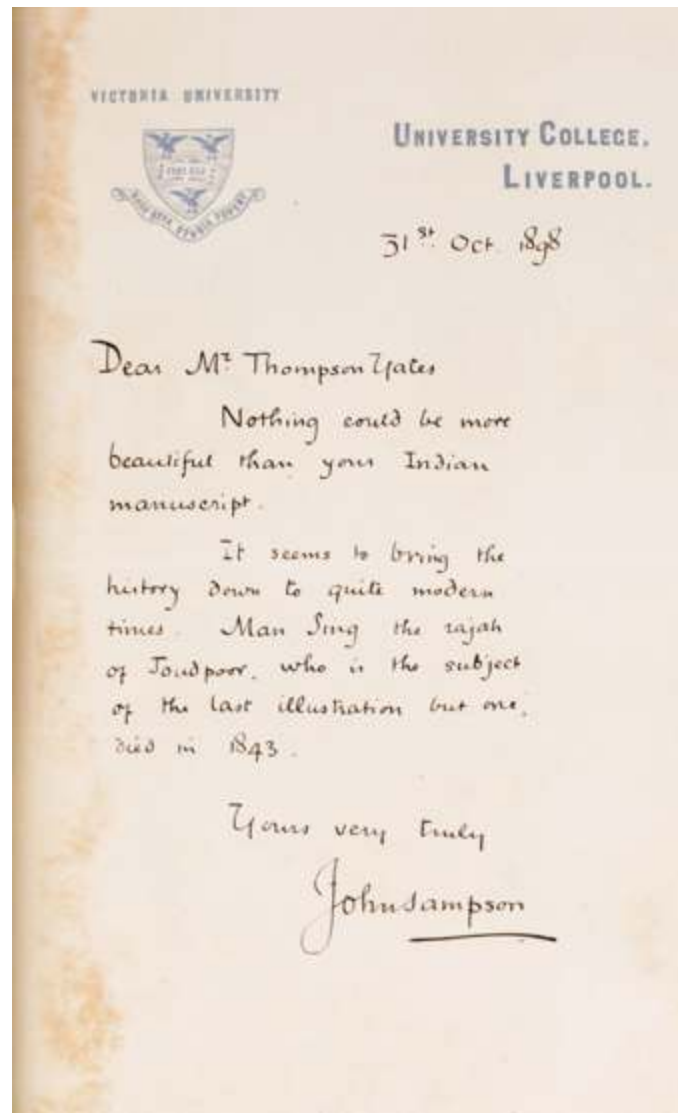 VICTORIA UNIVERSITY
UNIVERSITY COLLEGE,
LIVERPOOL.
31st. Oct. 1898
Dear Mr. Thompson Yates
Nothing could be more
beautiful than your Indian
manuscript.
It seems to bring the
history down to quite modern
times. Man Sing the rajah
of Joudpoor, who is the subject
of the last illustration but one,
died in 1843.
Yours very truly
John Sampson